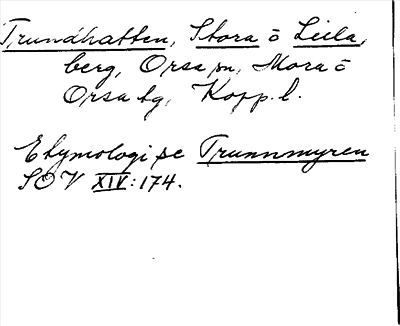 Trundhatten, Stora o Lilla,
berg, Orsa sn, Mora o
Orsa tg, Kopp. l.
Etymologi se Trunnmyren
SOV XIV:174.